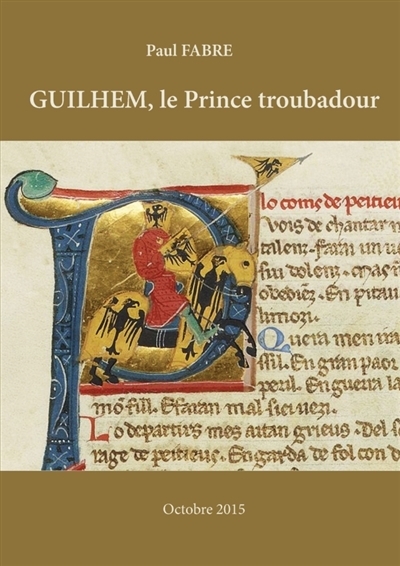 Paul FABRE
GUILHEM, le Prince troubadour
lo coms de peitieu
ois de chantar m
talenz. Farai un ve
sui dolenz. mas n
obediēz. En pitau
limozi.
Quera men
sill. En gran paor
peril. En guerra la
mō fill. E faran mal siei vezi.
Lo departirs mes aitan grieus. Del se
rage de peitieus. En garda de fol con d
Octobre 2015